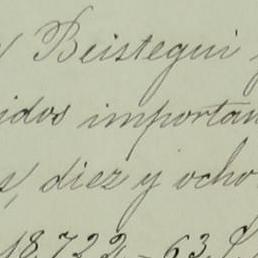 y Beistegui
idos importan
s, diez y ocho
18,722-63.